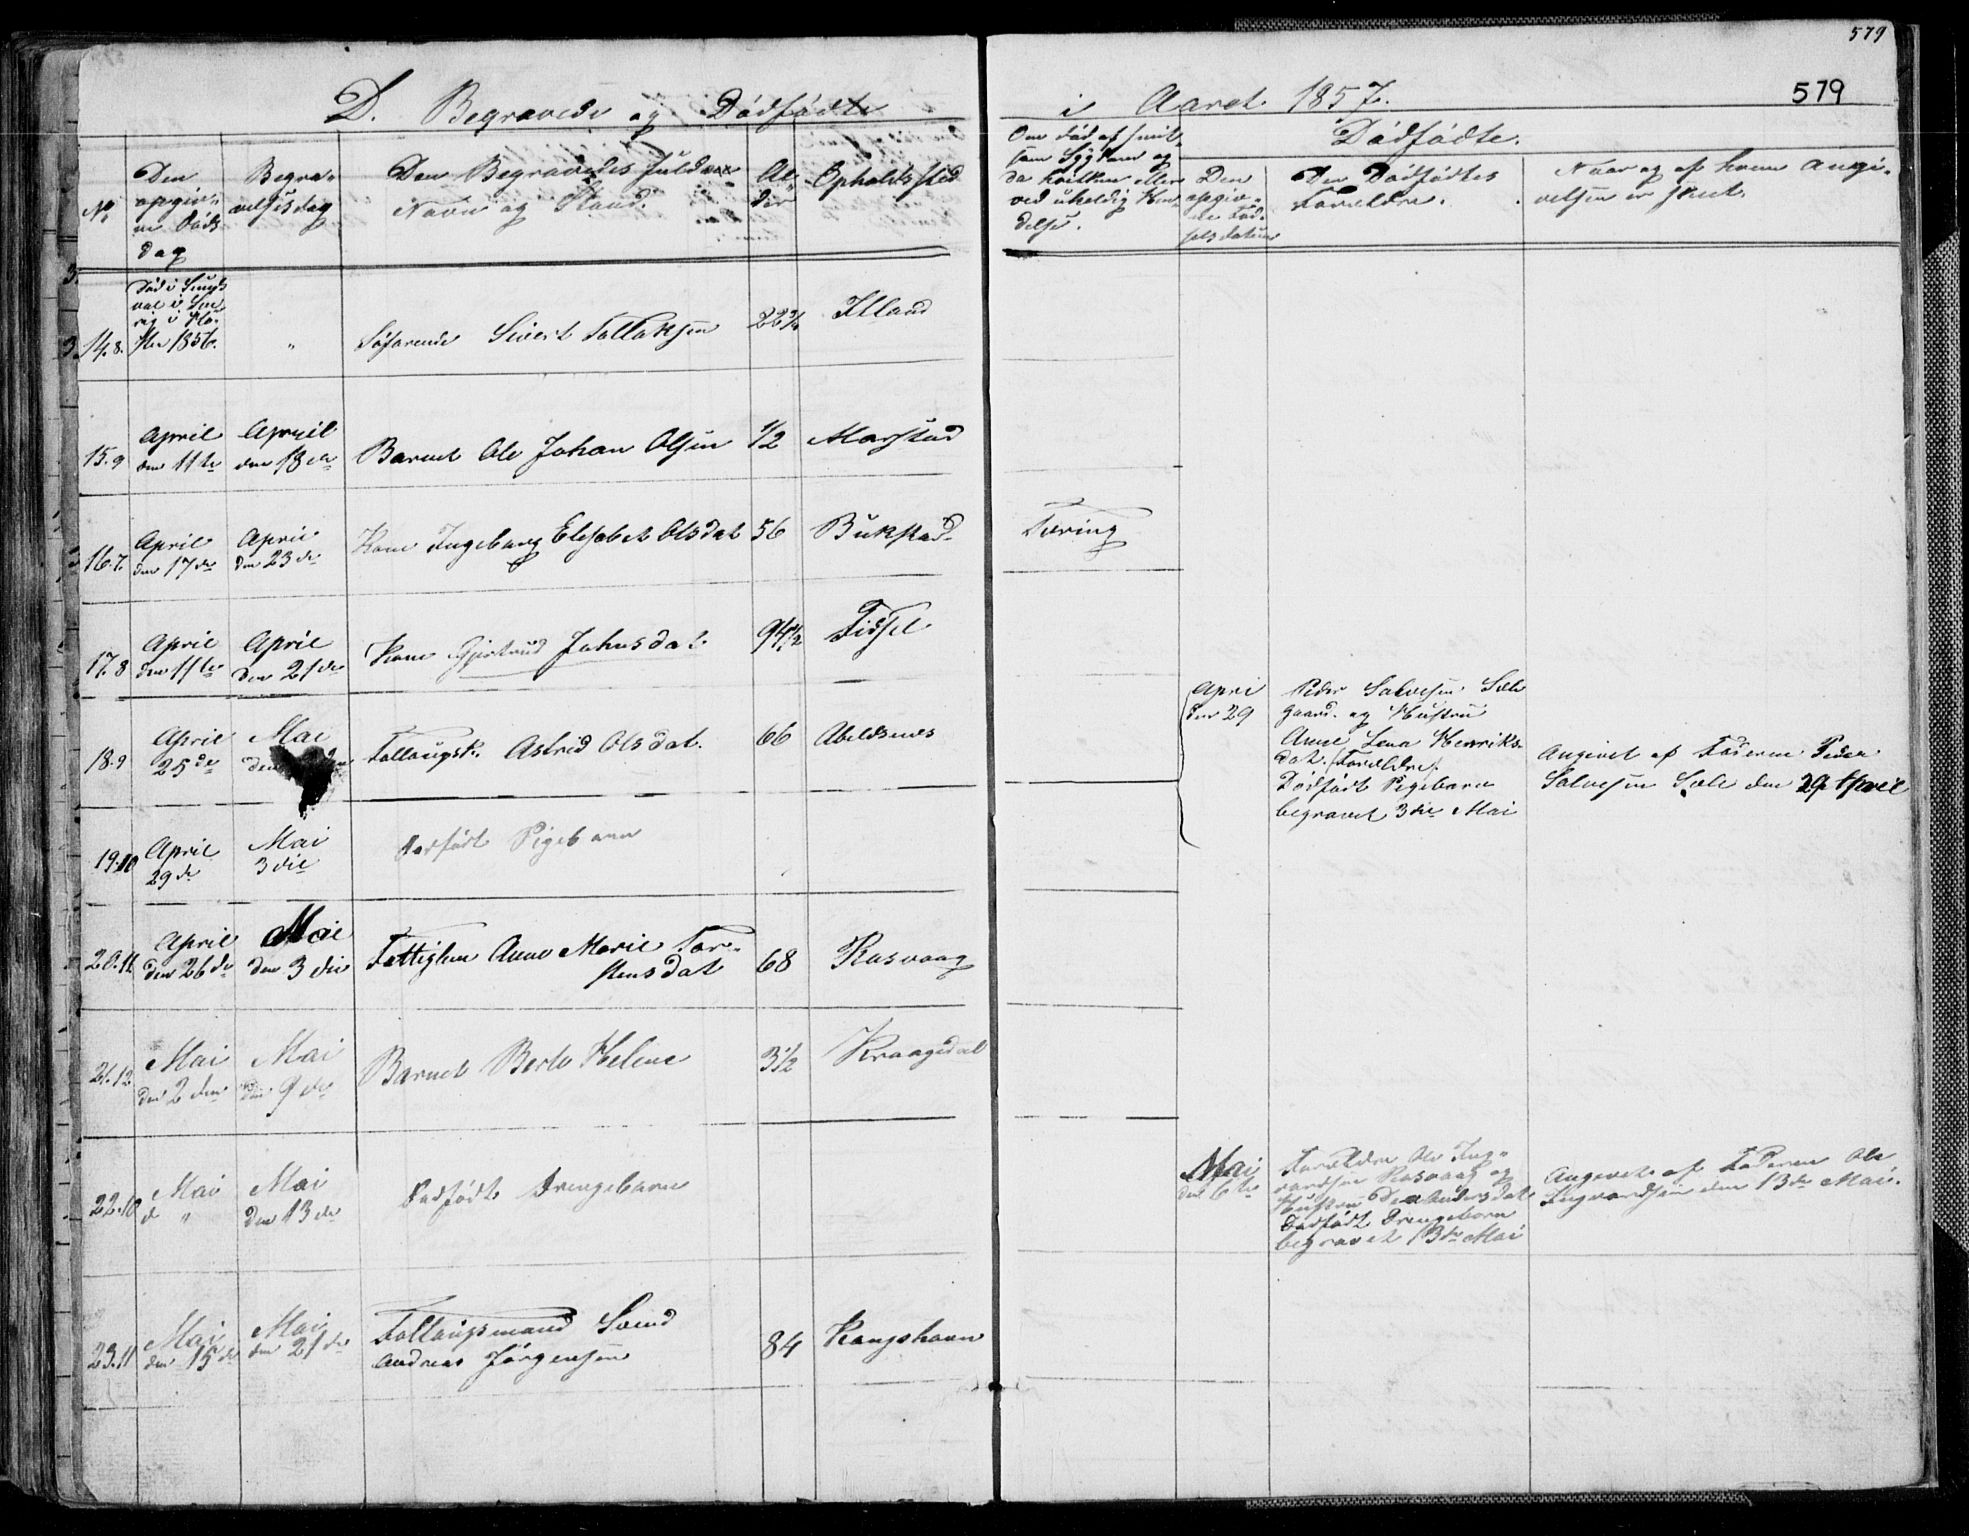 579
579
D. Begravede og Dødfødte
i Aaret 1857.
No.
Den
opgiv-
ne Døds
dag
Begra-
velsesdag
Den Begravedes fulde
Navn og Stand.
Al-
der
Opholdssted
Om død af smit-
som Sygdom og
da hvilken eller
ved uheldig Hæn-
delse.
Dødfødte.
Den
opgiv-
ne Fød-
selsdatum
Den Dødfødtes
Forældre.
Naar og af hvem Angi-
velsen er skeet.
14.8.
Død i
1856.
"
Søfarende Sivert Tollaksen
22 3/4
Itland
15.9
April
den 11te
April
den 18de
Barnet Ole Johan Olsen
1/2
Marstad
16.7.
April
den 17de
April
den 23de
Kone Ingeborg Elisabet Olsdat
56
Bukstad
Tæring
17.8
April
den 11te
April
den 21de
Kone Gjertrud Johnsdat.
94 1/2
Fidsel
18.9
April
25de
Mai
den
Follaugsk. Astrid Olsdat.
66
Abeldsnes
April
den 29
Peder Salvesen Sæle
gaard. og Hustru
Anne Lena Henriks-
dat. Forældre.
Dødfødt Pigebarn
begravet 3die Mai
Angivet af Faderen Peder
Salvesen Sæle den 29 April
19.10
April
29de
Mai
3die
Dødfødt Pigebarn
20.11.
April
den 26de
Mai
den 3die
Fattiglem Anne Marie Tor-
stensdat
68
Rasvaag
21.12
Mai
den 2den
Mai
den 9de
Barnet Berte Helene
3 1/2
Kraagedal
22.10
Mai
d "
Mai
den 13de
Dødfødt Drengebarn
Mai
den 6te
Forældre Ole Ing-
vardsen Rasvaag og
Hustru Andersdat
Dødfødt Drengebarn
begravet 13de Mai
Angivet af Faderen Ole
Ingvardsen den 13de Mai.
23.11
Mai
den 15de
Mai
den 21de
Follaugsmand Svend
Andreas Jørgensen
84
Kongshavn